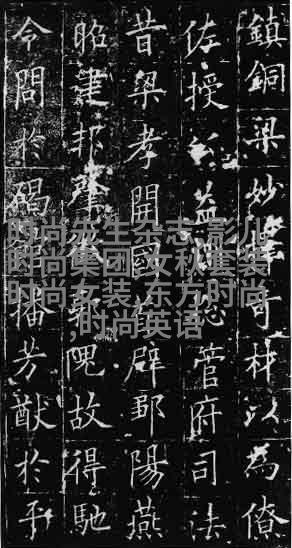 鎮銅梁妙擇奇材以為僚
佐授益州總管府司法
昔梁孝開國首辟鄒陽燕
昭建邦肇徵郭隗故得馳
令問於碣館播芳猷於平
时尚先生杂志,影儿
时尚集团,女秋套装
时尚女装,东方时尚
,时尚英语